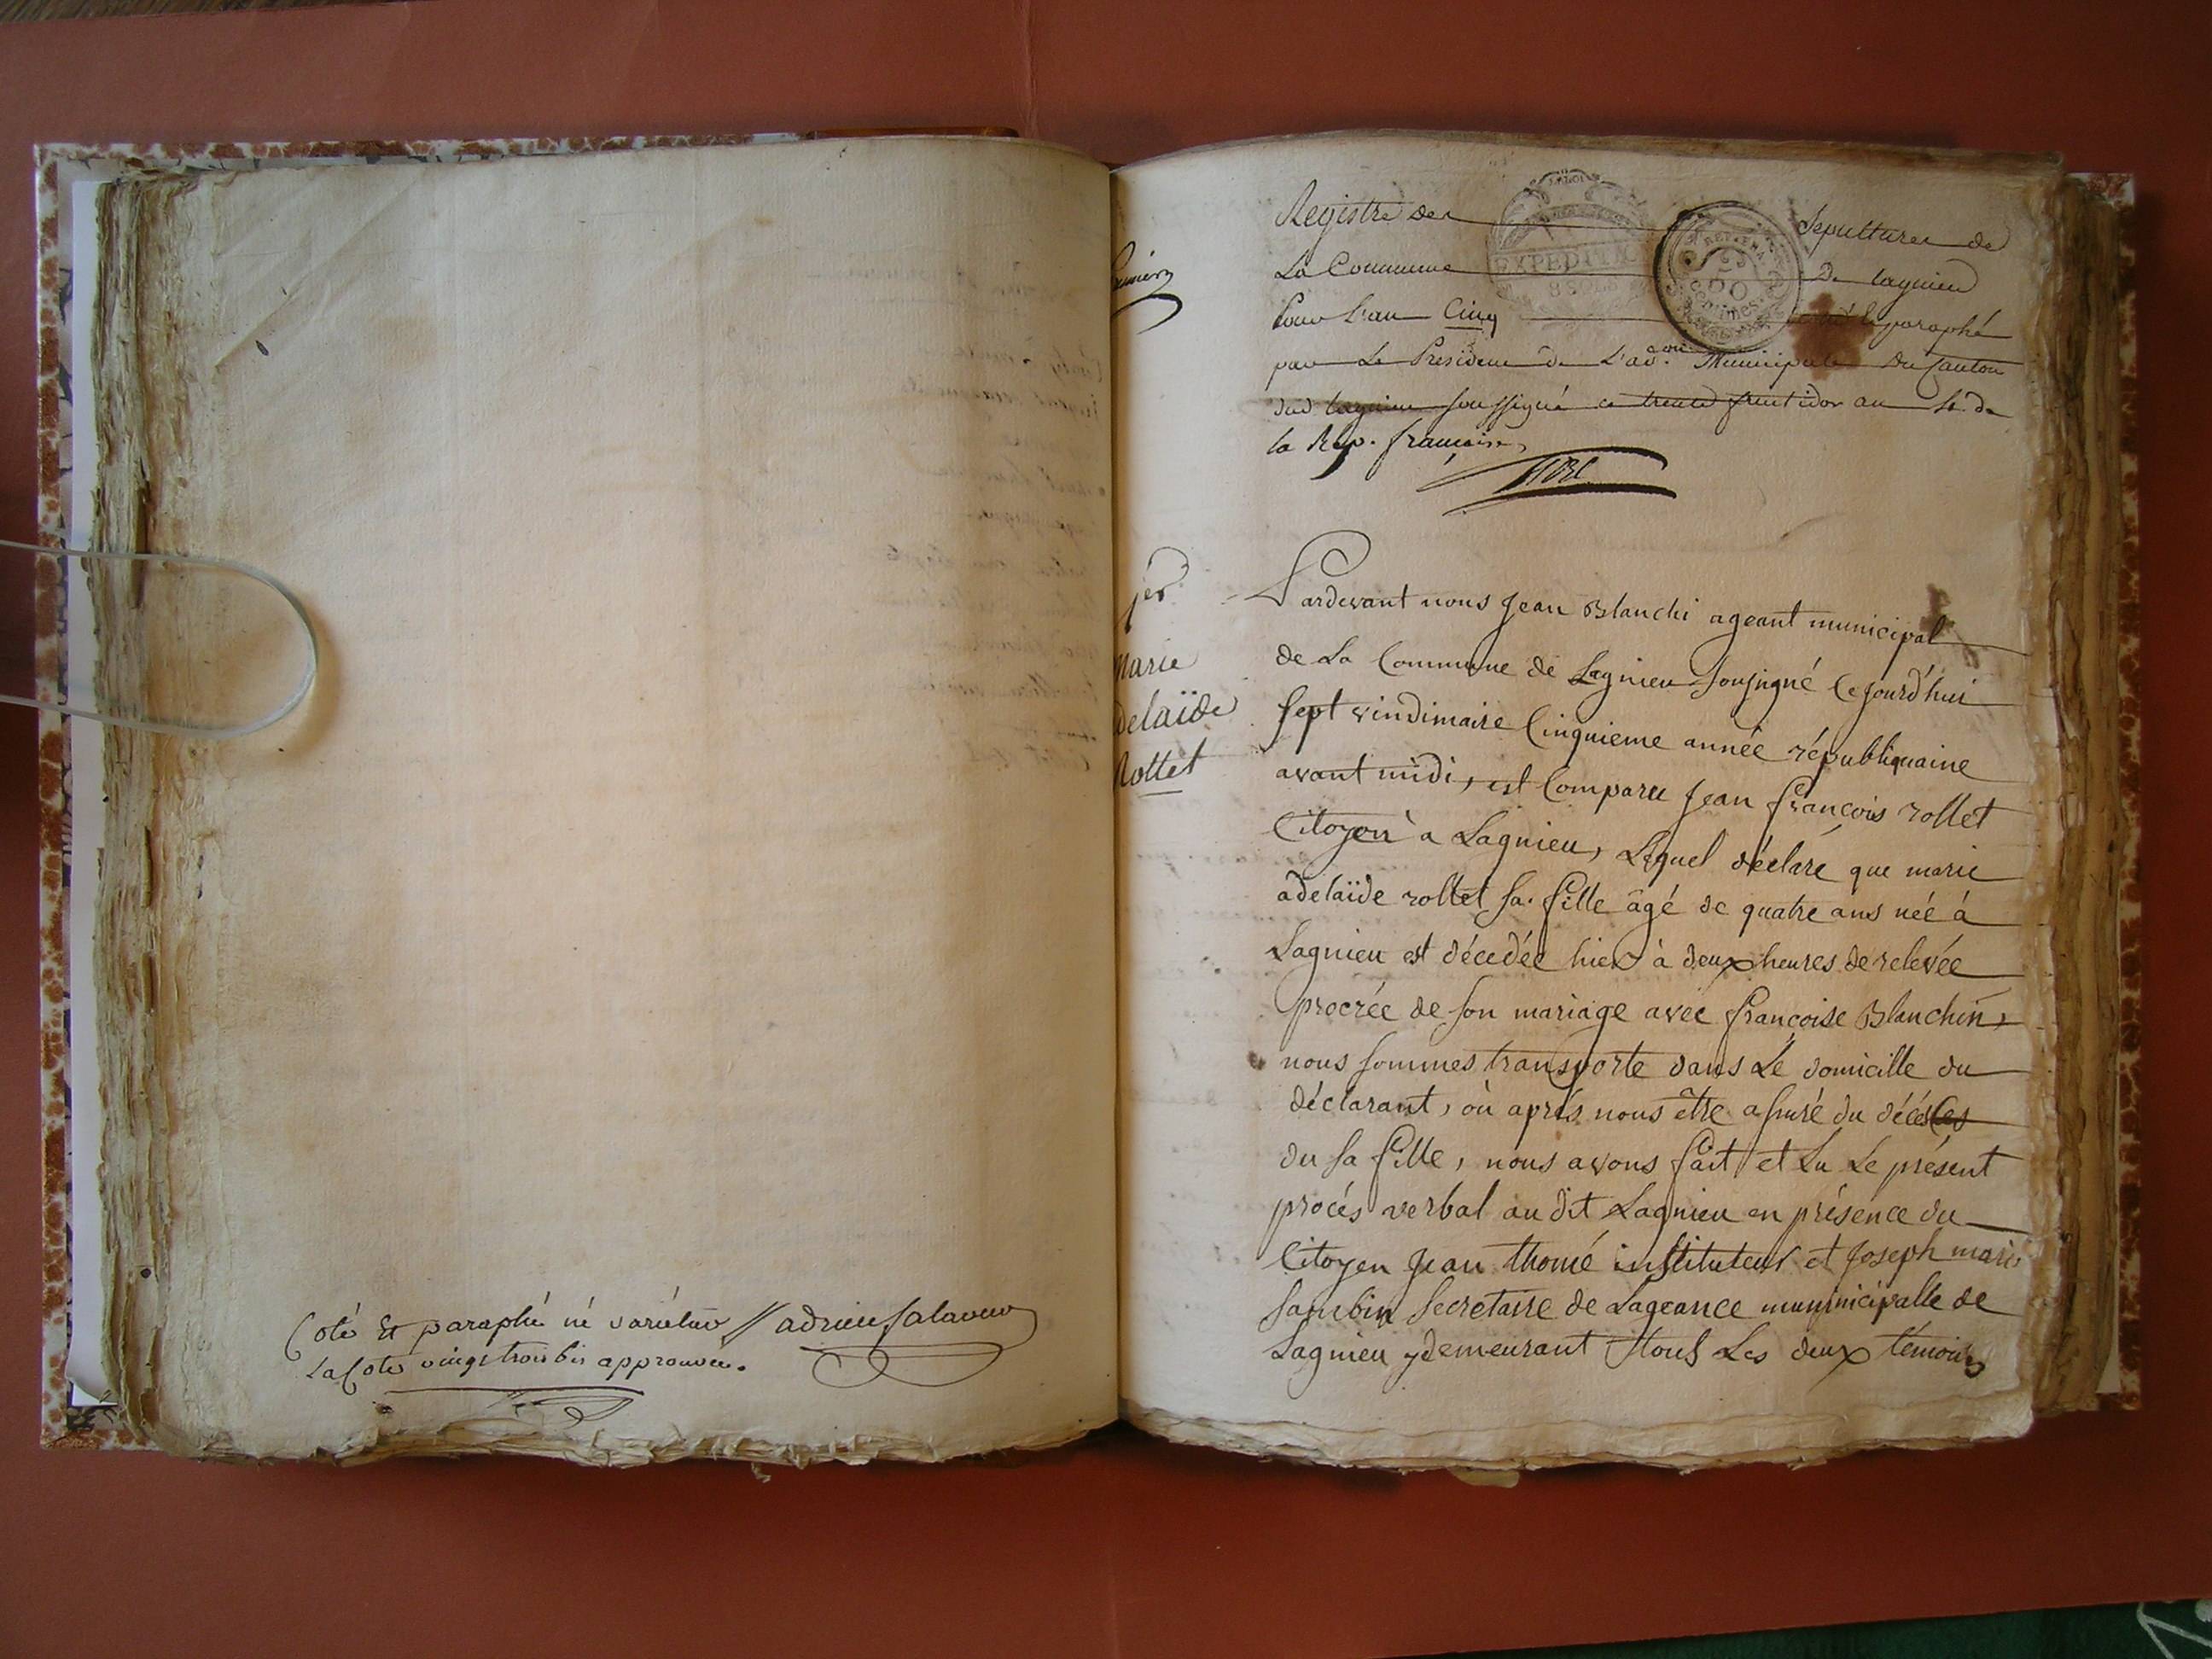 Coté et paraphé né variétur // adrien Salavuo
La Cote vingt trois bis approuvée.
Registre des Sepultures de
La Commune De lagnieu
Pour L'an Cinq paraphé
par Le President de L'ad.on Municipale du Canton
dud lagnieu soussigné ce trente fructidor an 4e de
la Rép. française,
EXPEDITION
8 SOLS
REP. FRA.
50
centimes
1er
Marie
adelaïde
Rottet
Pardevant nous Jean Blanchi ageant municipal
de La Commune de Lagnieu Sousigné Cejourd'hui
Sept vindimaire Cinquieme année républiquaine
avant midi, est Comparu Jean françois rottet
Citoyen a Lagnieu, Lequel déclare que marie
adelaïde rottet Sa fille âgé de quatre ans née à
Lagnieu est décedée hier à deux heures de relevée
procrée de Son mariage avec françoise Blanchin,
nous Sommes transporte dans Le domicille du
déclarant, où aprés nous être assuré du décés
du Sa fille, nous avons fait et Lu Le présent
procés verbal au dit Lagnieu en présence du
Citoyen Jean thomé instituteur et Joseph marie
Sambin Secretaire de Lageance munninicipalle de
Lagnieu y demeurant tous Les deux témoins